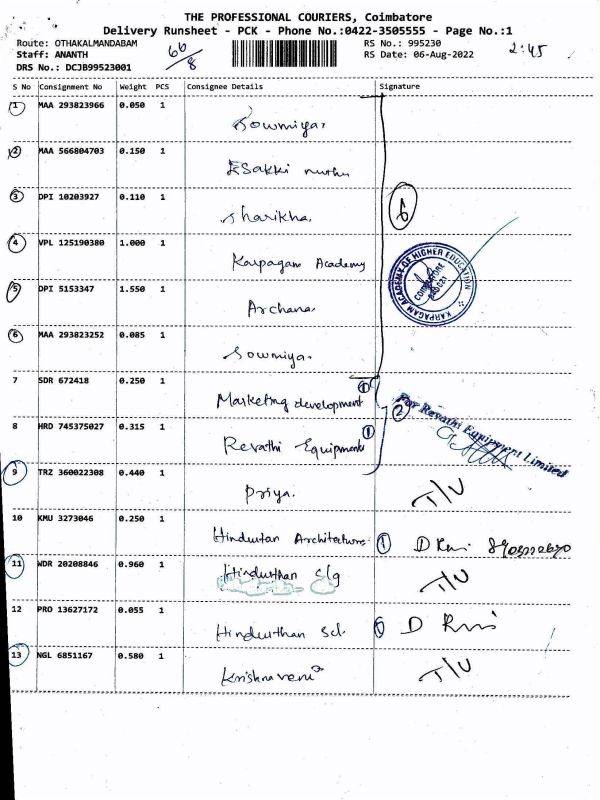 THE PROFESSIONAL COURIERS, Coimbatore
Delivery Runsheet - PCK - Phone No.:0422-3505555 - Page No.:1
Route: OTHAKALMANDABAM RS No.: 995230 2:45
Staff: ANANTH RS Date: 06-Aug-2022
DRS No.: DCJB99523001
S No Consignment No Weight PCS Consignee Details Signature
1 MAA 293823966 0.050 1 Sowmiya.
2 MAA 566804703 0.150 1 Esakki muthu
3 DPI 10203927 0.110 1 Sharikha. 6
4 VPL 125190380 1.000 1 Karpagam Academy
KARPAGAM ACADEMY OF HIGHER EDUCATION
COIMBATORE
5 DPI 5153347 1.550 1 Archana.
6 MAA 293823252 0.085 1 Sowmiya.
7 SDR 672418 0.250 1 Marketing development 1
2 For Revathi Equipment Limited
8 HRD 745375027 0.315 1 Revathi Equipments 1
9 TRZ 360022308 0.440 1 Priya. T/U
10 KMU 3273046 0.250 1 Hindustan Architecture 1
11 WDR 20208846 0.960 1 Hindusthan clg T/U
12 PRO 13627172 0.055 1 Hindusthan Scl.
13 NGL 6851167 0.580 1 Krishnaveni T/U